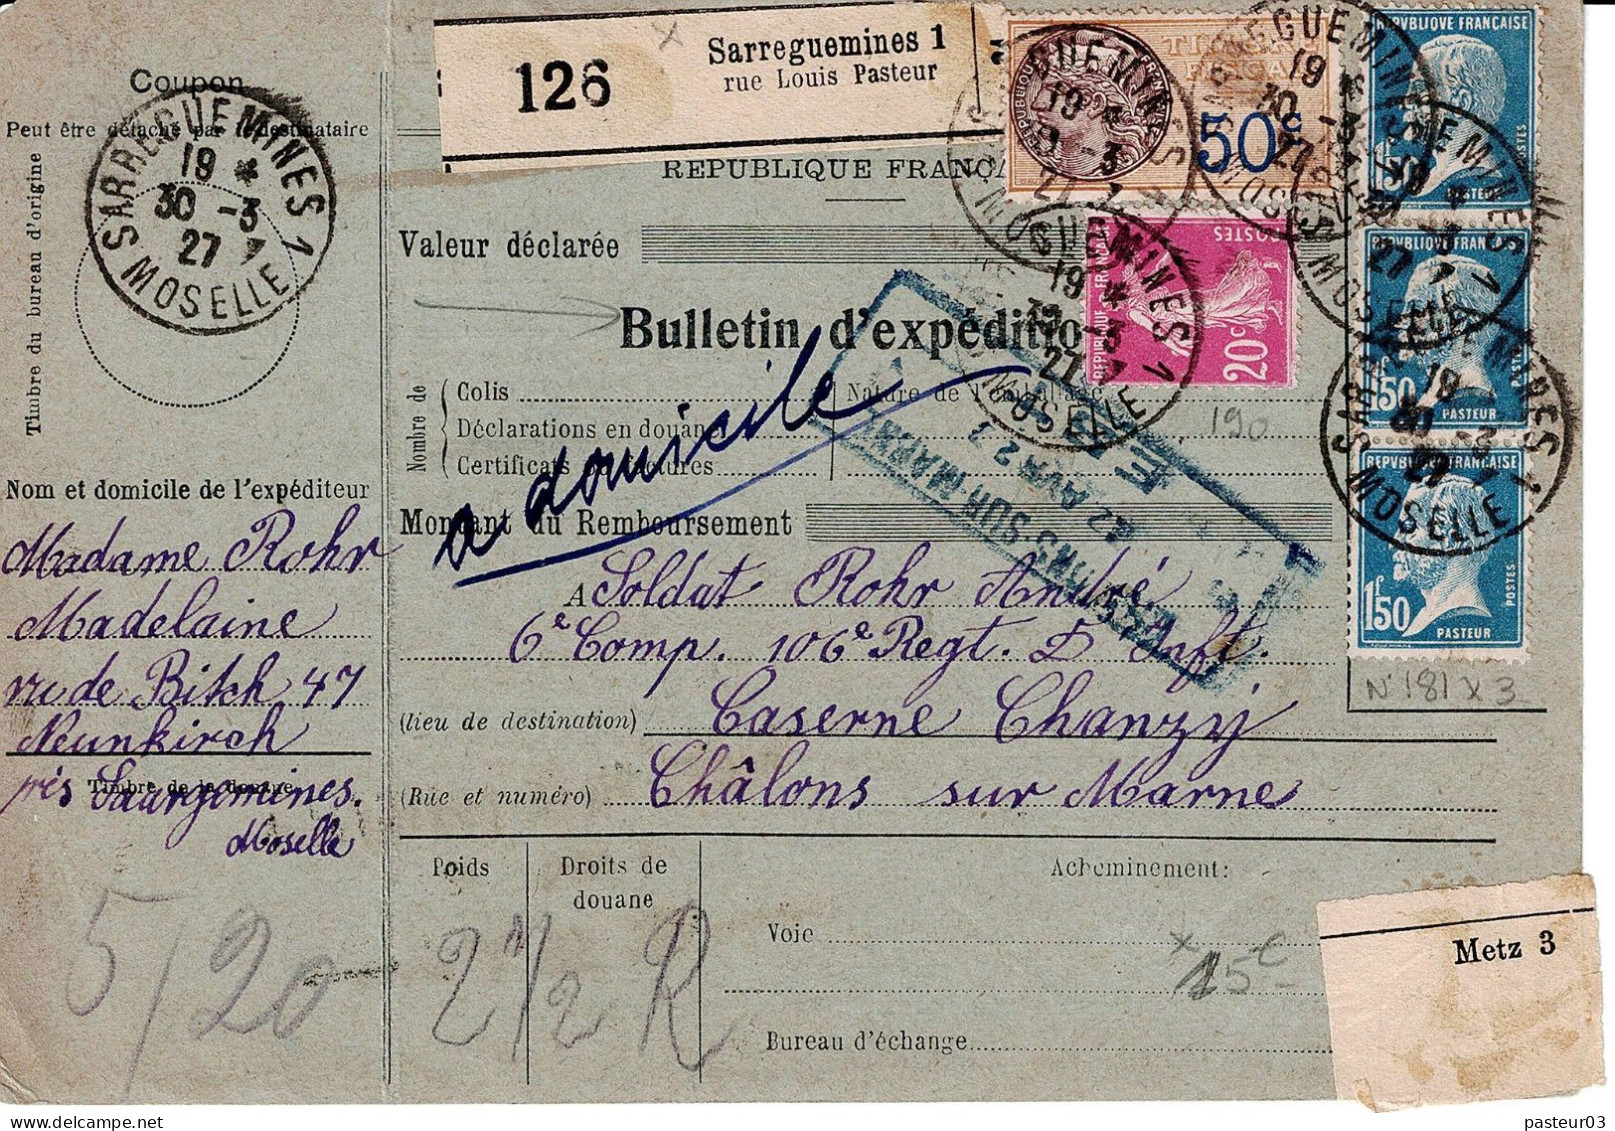 Sarreguemines 1
126
rue Louis Pasteur
Coupon
Peut être détaché par le destinataire
SARREGUEMINES 1
19 *
30 -3
27
MOSELLE
Timbre du bureau d'origine
REPUBLIQUE FRANÇA
TIMBRE
FISCAL
50c
REPVBLIQVE FRANÇAISE
1f50
REPVBLIQVE FRANÇAISE
1f50
PASTEUR
POSTES
REPVBLIQVE FRANÇAISE
1f50
PASTEUR
POSTES
POSTES
REPUBLIQUE FRANÇAISE
20c
Valeur déclarée
Bulletin d'expéditio
Nombre de
Colis
Nature de l'emballage
Déclarations en douane
Certificats ou factures
190
à domicile
Nom et domicile de l'expéditeur
Montant du Remboursement
Madame Rohr
Madelaine
rue de Bitch 47
Neunkirch
près Saargemines.
Moselle
Timbre de la douane
A Soldat Rohr André
6e Comp. 106e Regt. D' Inft.
(lieu de destination) Caserne Chanzy
(Rue et numéro) Châlons sur Marne
CHALONS-SUR-MARNE
2 AVR 27
N° 181 x 3
Poids
Droits de douane
Acheminement:
Voie
Bureau d'échange
5/20
2 1/2 K
15-
Metz 3
pasteur03